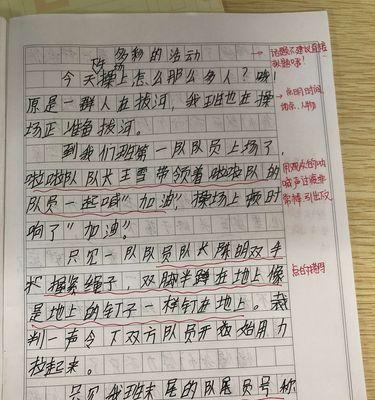 多彩的活动
今天操场上怎么那么多人？哦！
原是一群人在拔河，我班也在操
场正准备拔河。
到我们班第一队队员上场了，
啦啦队队长王雪带领着啦啦队的
队员一起喊“加油”，操场上顿时
响了“加油”。
只见一队队员队长陈明双手
握紧绳子，双脚半蹲在地上像
是地上的钉子一样钉在地上。裁
判一声令下双方队员开始用力
拉起来。
只见我班末尾的队尾员号称
话题不建议直接
拟题哦！
点明时间、
地点、人物
用观众的呐
喊声过渡非
常棒，引出双
点的描写